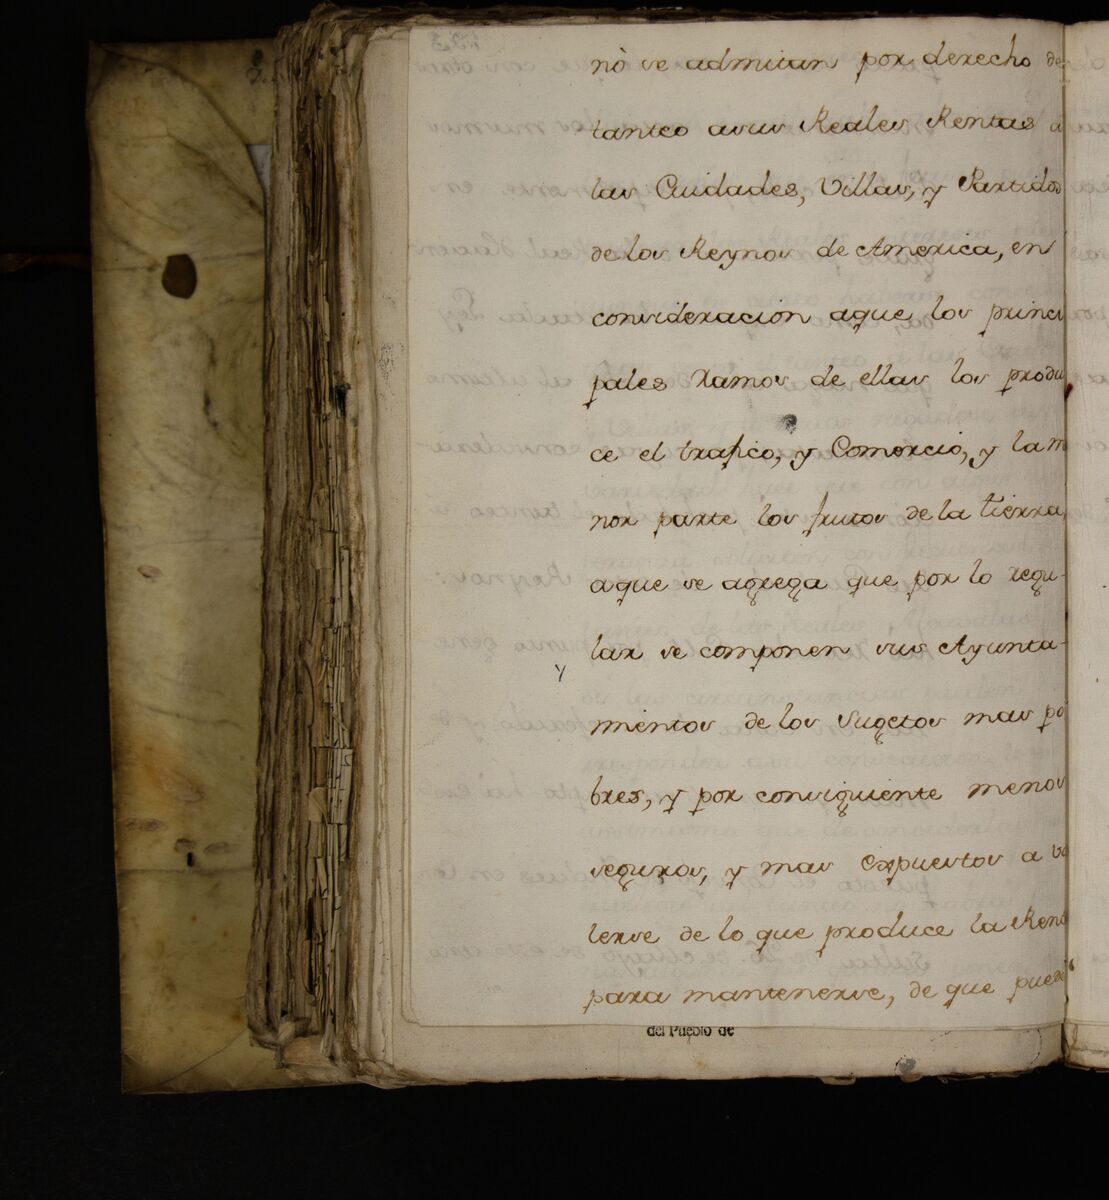 nò se admitan por derecho de
tanteo asus Reales Rentas a
las Ciudades, Villas, y Partidos
de los Reynos de America, en
consideracion aque los princi
pales Ramos de ellas los produ
ce el trafico, y Comercio, y la m
nor parte los frutos de la tierra,
aque se agrega que por lo regu-
lar se componen sus Ayunta-
y
mientos de los sugetos mas po
bres, y por consiguiente menos
seguros, y mas expuestos a va
lerse de lo que produce la Rent
para mantenerse, de que puede
del Pueblo de